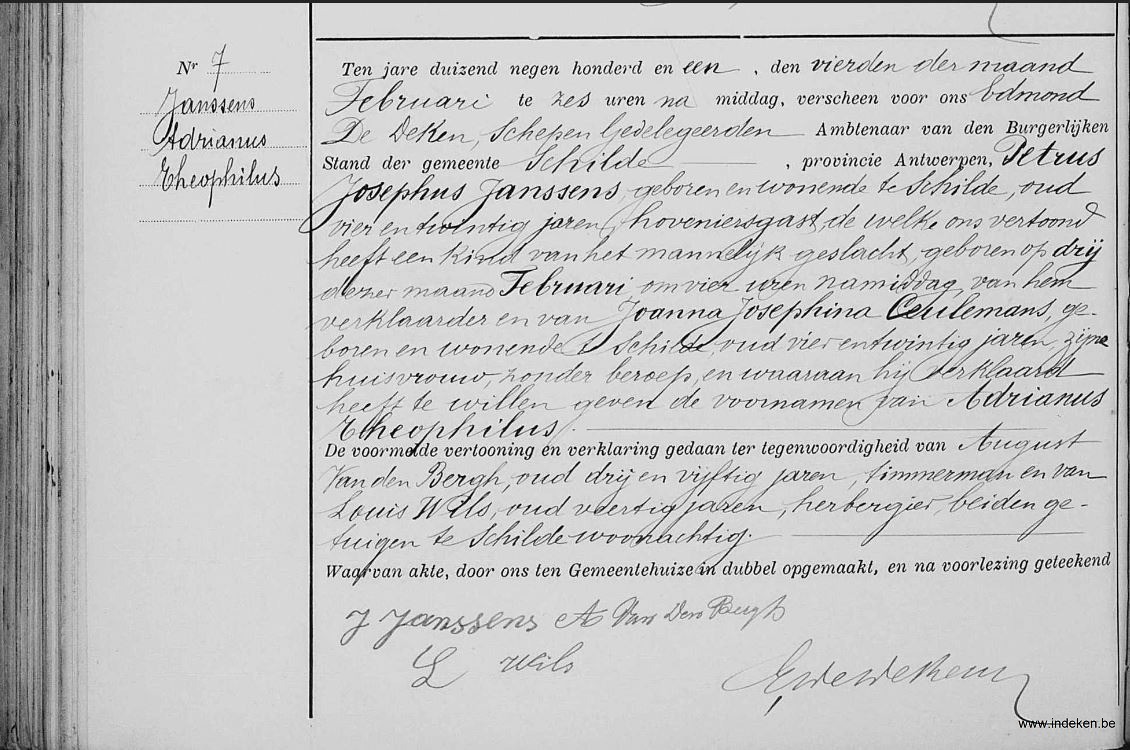 Nr 7
Janssens
Adrianus
Theophilus
Ten jare duizend negen honderd en een , den vierden der maand
Februari te zes uren na middag, verscheen voor ons Edmond
De Deken, Schepen Gedelegeerden Ambtenaar van den Burgerlijken
Stand der gemeente Schilde , provincie Antwerpen, Petrus
Josephus Janssens, geboren en wonende te Schilde, oud
vier en twintig jaren, hoveniersgast, de welke ons vertoond
heeft een kind van het mannelijk geslacht, geboren op drij
dezer maand Februari om vier uren namiddag, van hem
verklaarder en van Joanna Josephina Ceulemans, ge-
boren en wonende te Schilde, oud vier en twintig jaren, zijne
huisvrouw, zonder beroep, en waaraan hij verklaard
heeft te willen geven de voornamen van Adrianus
Theophilus.
De voormelde vertooning en verklaring gedaan ter tegenwoordigheid van August
Van den Bergh, oud drij en vijftig jaren, timmerman en van
Louis Wils, oud veertig jaren, herbergier, beiden ge-
tuigen te Schilde woonachtig.
Waarvan akte, door ons ten Gemeentehuize in dubbel opgemaakt, en na voorlezing geteekend
J Janssens A Van Den Bergh
L Wils
E, de Deken
www.indeken.be